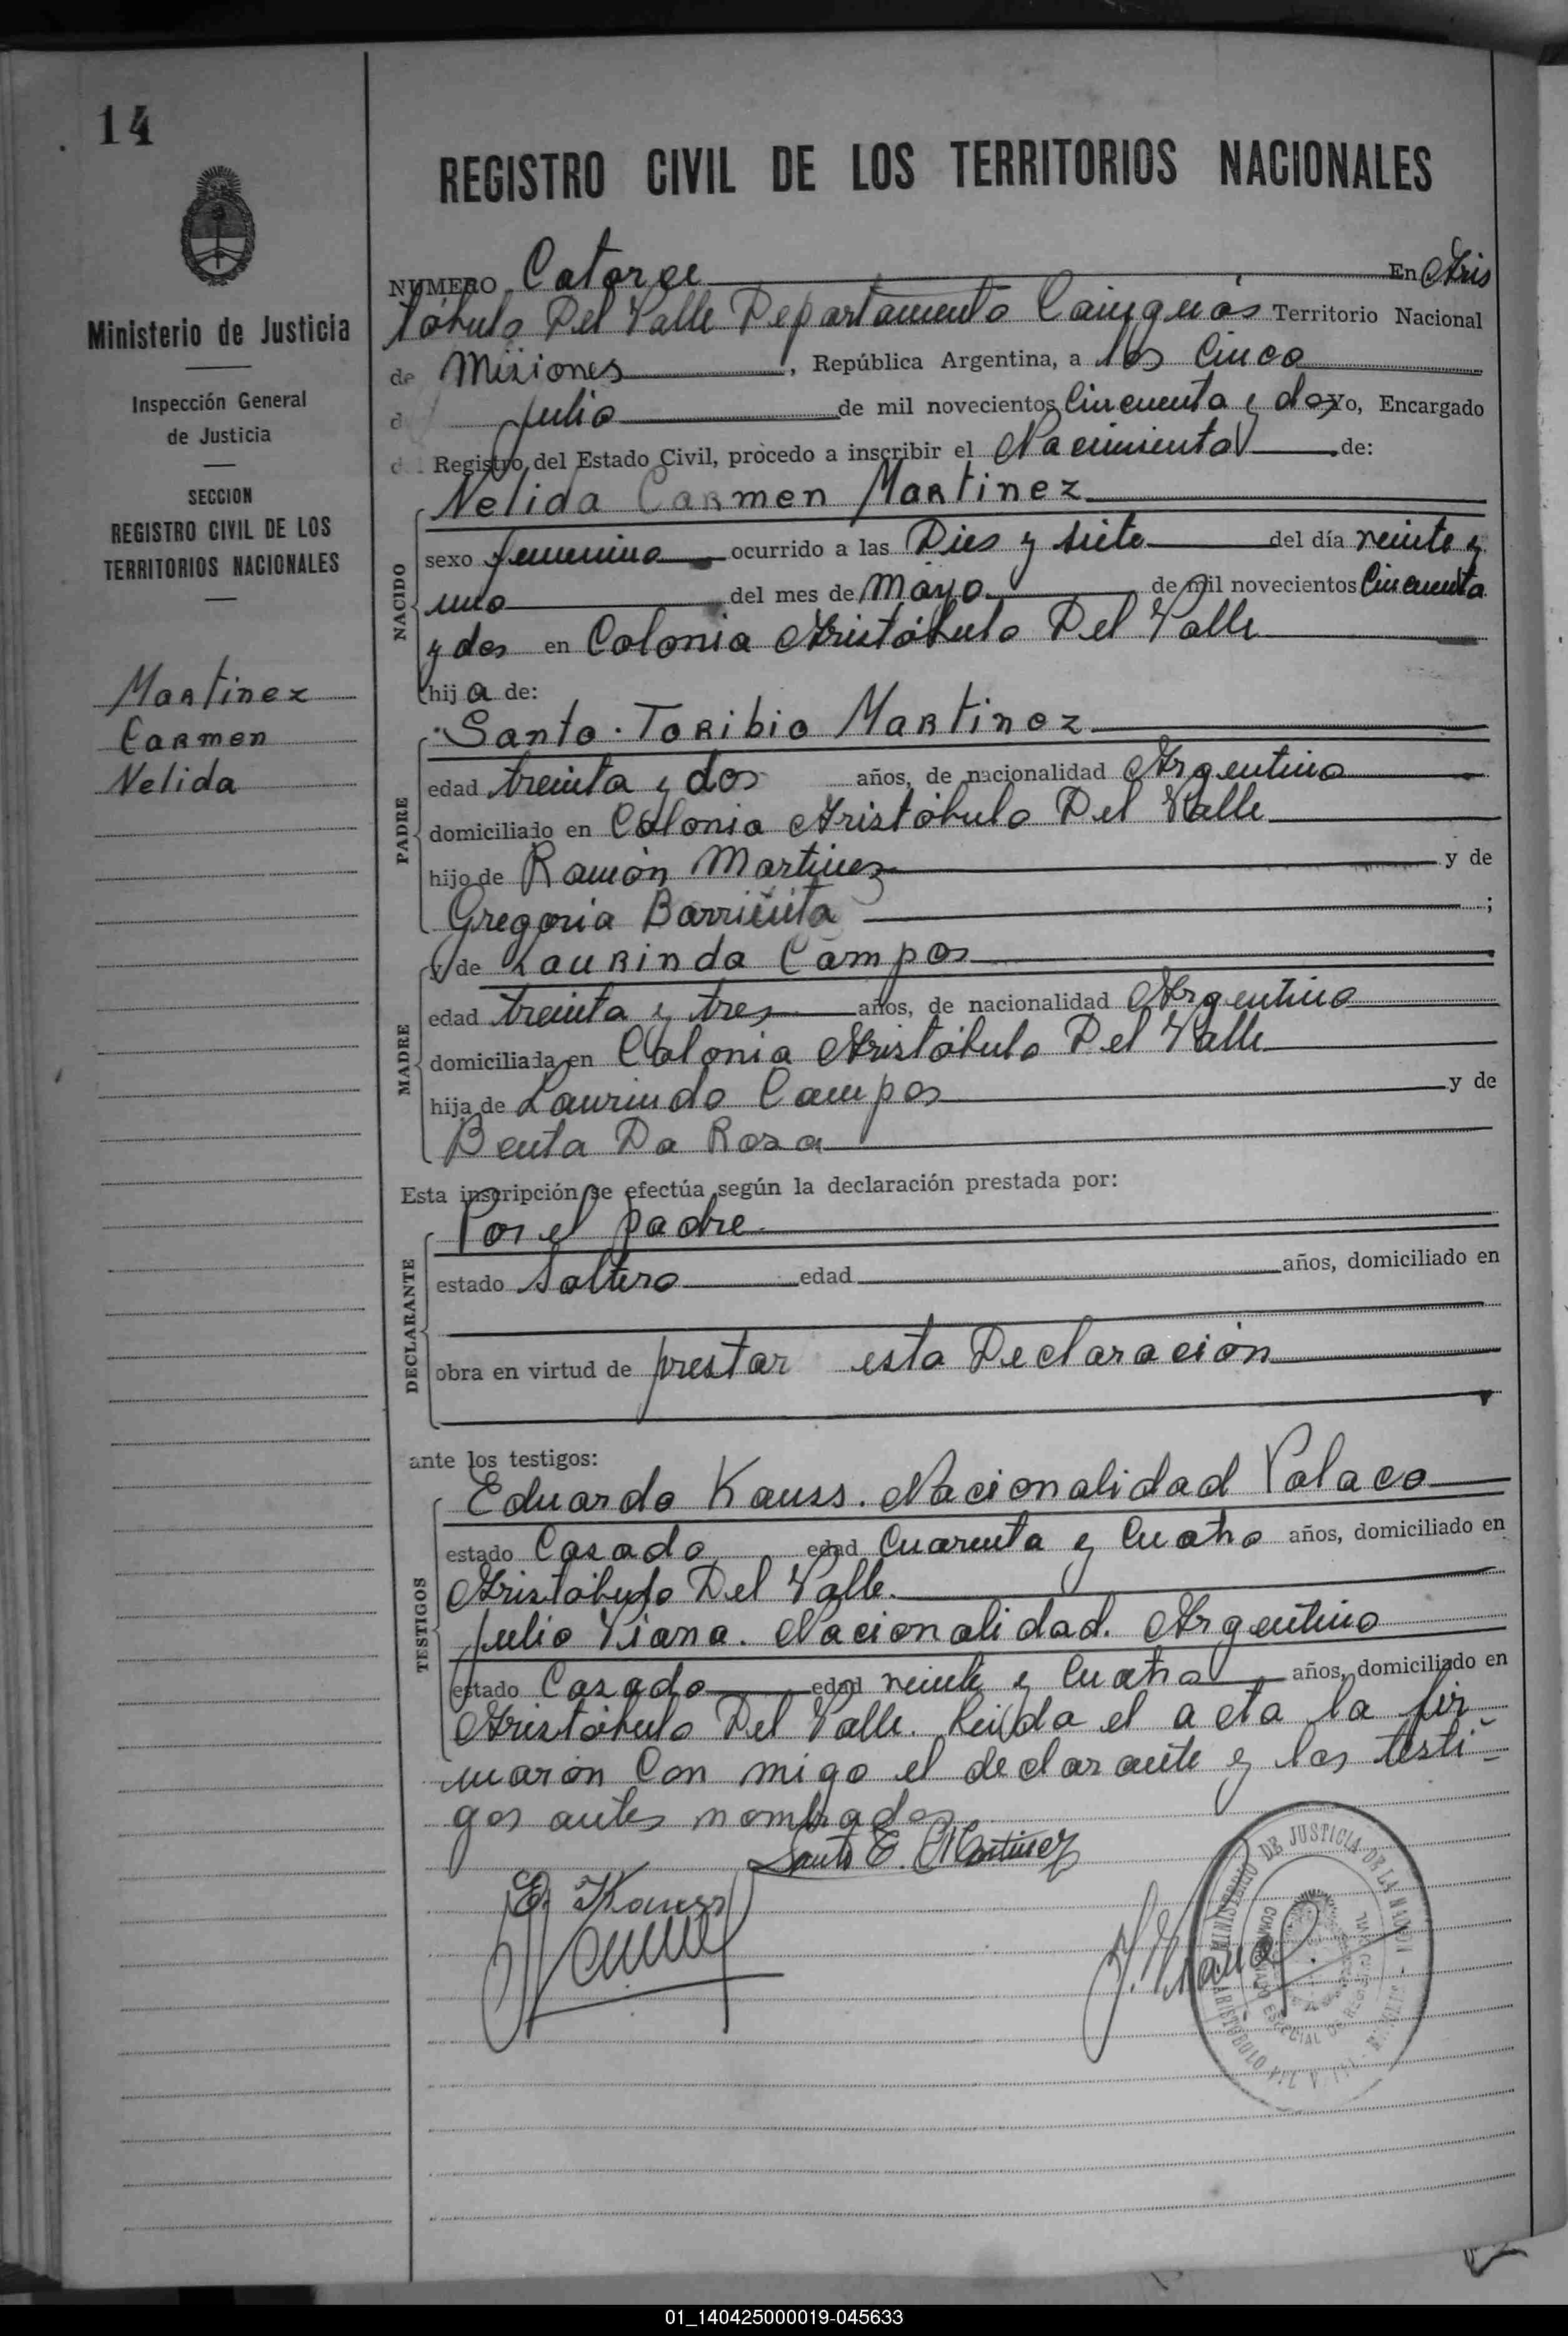 14
Ministerio de Justicia
Inspección General
de Justicia
SECCION
REGISTRO CIVIL DE LOS
TERRITORIOS NACIONALES
Martinez
Carmen
Nelida
REGISTRO CIVIL DE LOS TERRITORIOS NACIONALES
NUMERO Catorce En Aris
tóbulo Del Valle Departamento Cainguás Territorio Nacional
de Misiones, República Argentina, a los Cinco
d Julio de mil novecientos Cincuenta y dos Yo, Encargado
d Registro del Estado Civil, procedo a inscribir el Nacimiento de:
Nelida Carmen Martinez
NACIDO
sexo femenino ocurrido a las Dies y siete del día veinte y
uno del mes de Mayo de mil novecientos Cincuenta
y dos en Colonia Aristóbulo Del Valle
hij a de:
Santo Toribio Martinez
PADRE
edad treinta y dos años, de nacionalidad Argentino
domiciliado en Colonia Aristóbulo Del Valle
hijo de Ramón Martinez y de
Gregoria Barrienta ;
y de Laurinda Campos
MADRE
edad treinta y tres años, de nacionalidad Argentino
domiciliada en Colonia Aristóbulo Del Valle
hija de Laurindo Campos y de
Benta Da Rosa
Esta inscripción se efectúa según la declaración prestada por:
Por el padre
DECLARANTE
estado Soltero edad años, domiciliado en
obra en virtud de prestar esta Declaración
ante los testigos:
Eduardo Kauss. Nacionalidad Polaco
TESTIGOS
estado Casado edad Cuarenta y Cuatro años, domiciliado en
Aristóbulo Del Valle.
Julio Viana. Nacionalidad. Argentino
estado Casado edad veinte y Cuatro años, domiciliado en
Aristóbulo Del Valle. Leida el acta la fir-
maron Con migo el declarante y los testi-
gos antes nombrados
Santo E. Martinez
E. Kauss
J. Viana
MINISTERIO DE JUSTICIA DE LA NACION
01_140425000019-045633